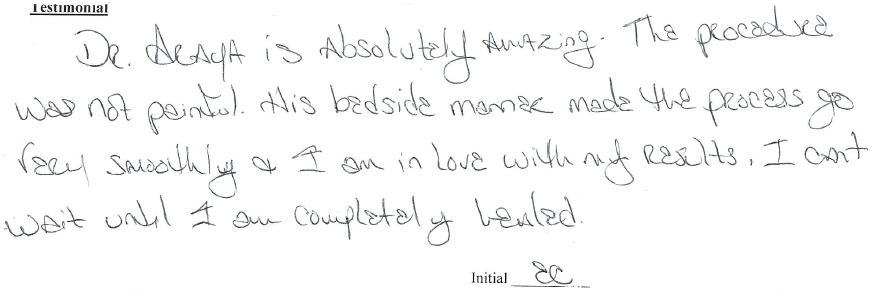 Testimonial
Dr. Acaya is Absolutely Amazing. The procedure
was not painful. His bedside manner made the process go
very smoothly & I am in love with my results. I can't
wait until I am completely healed.
Initial EC